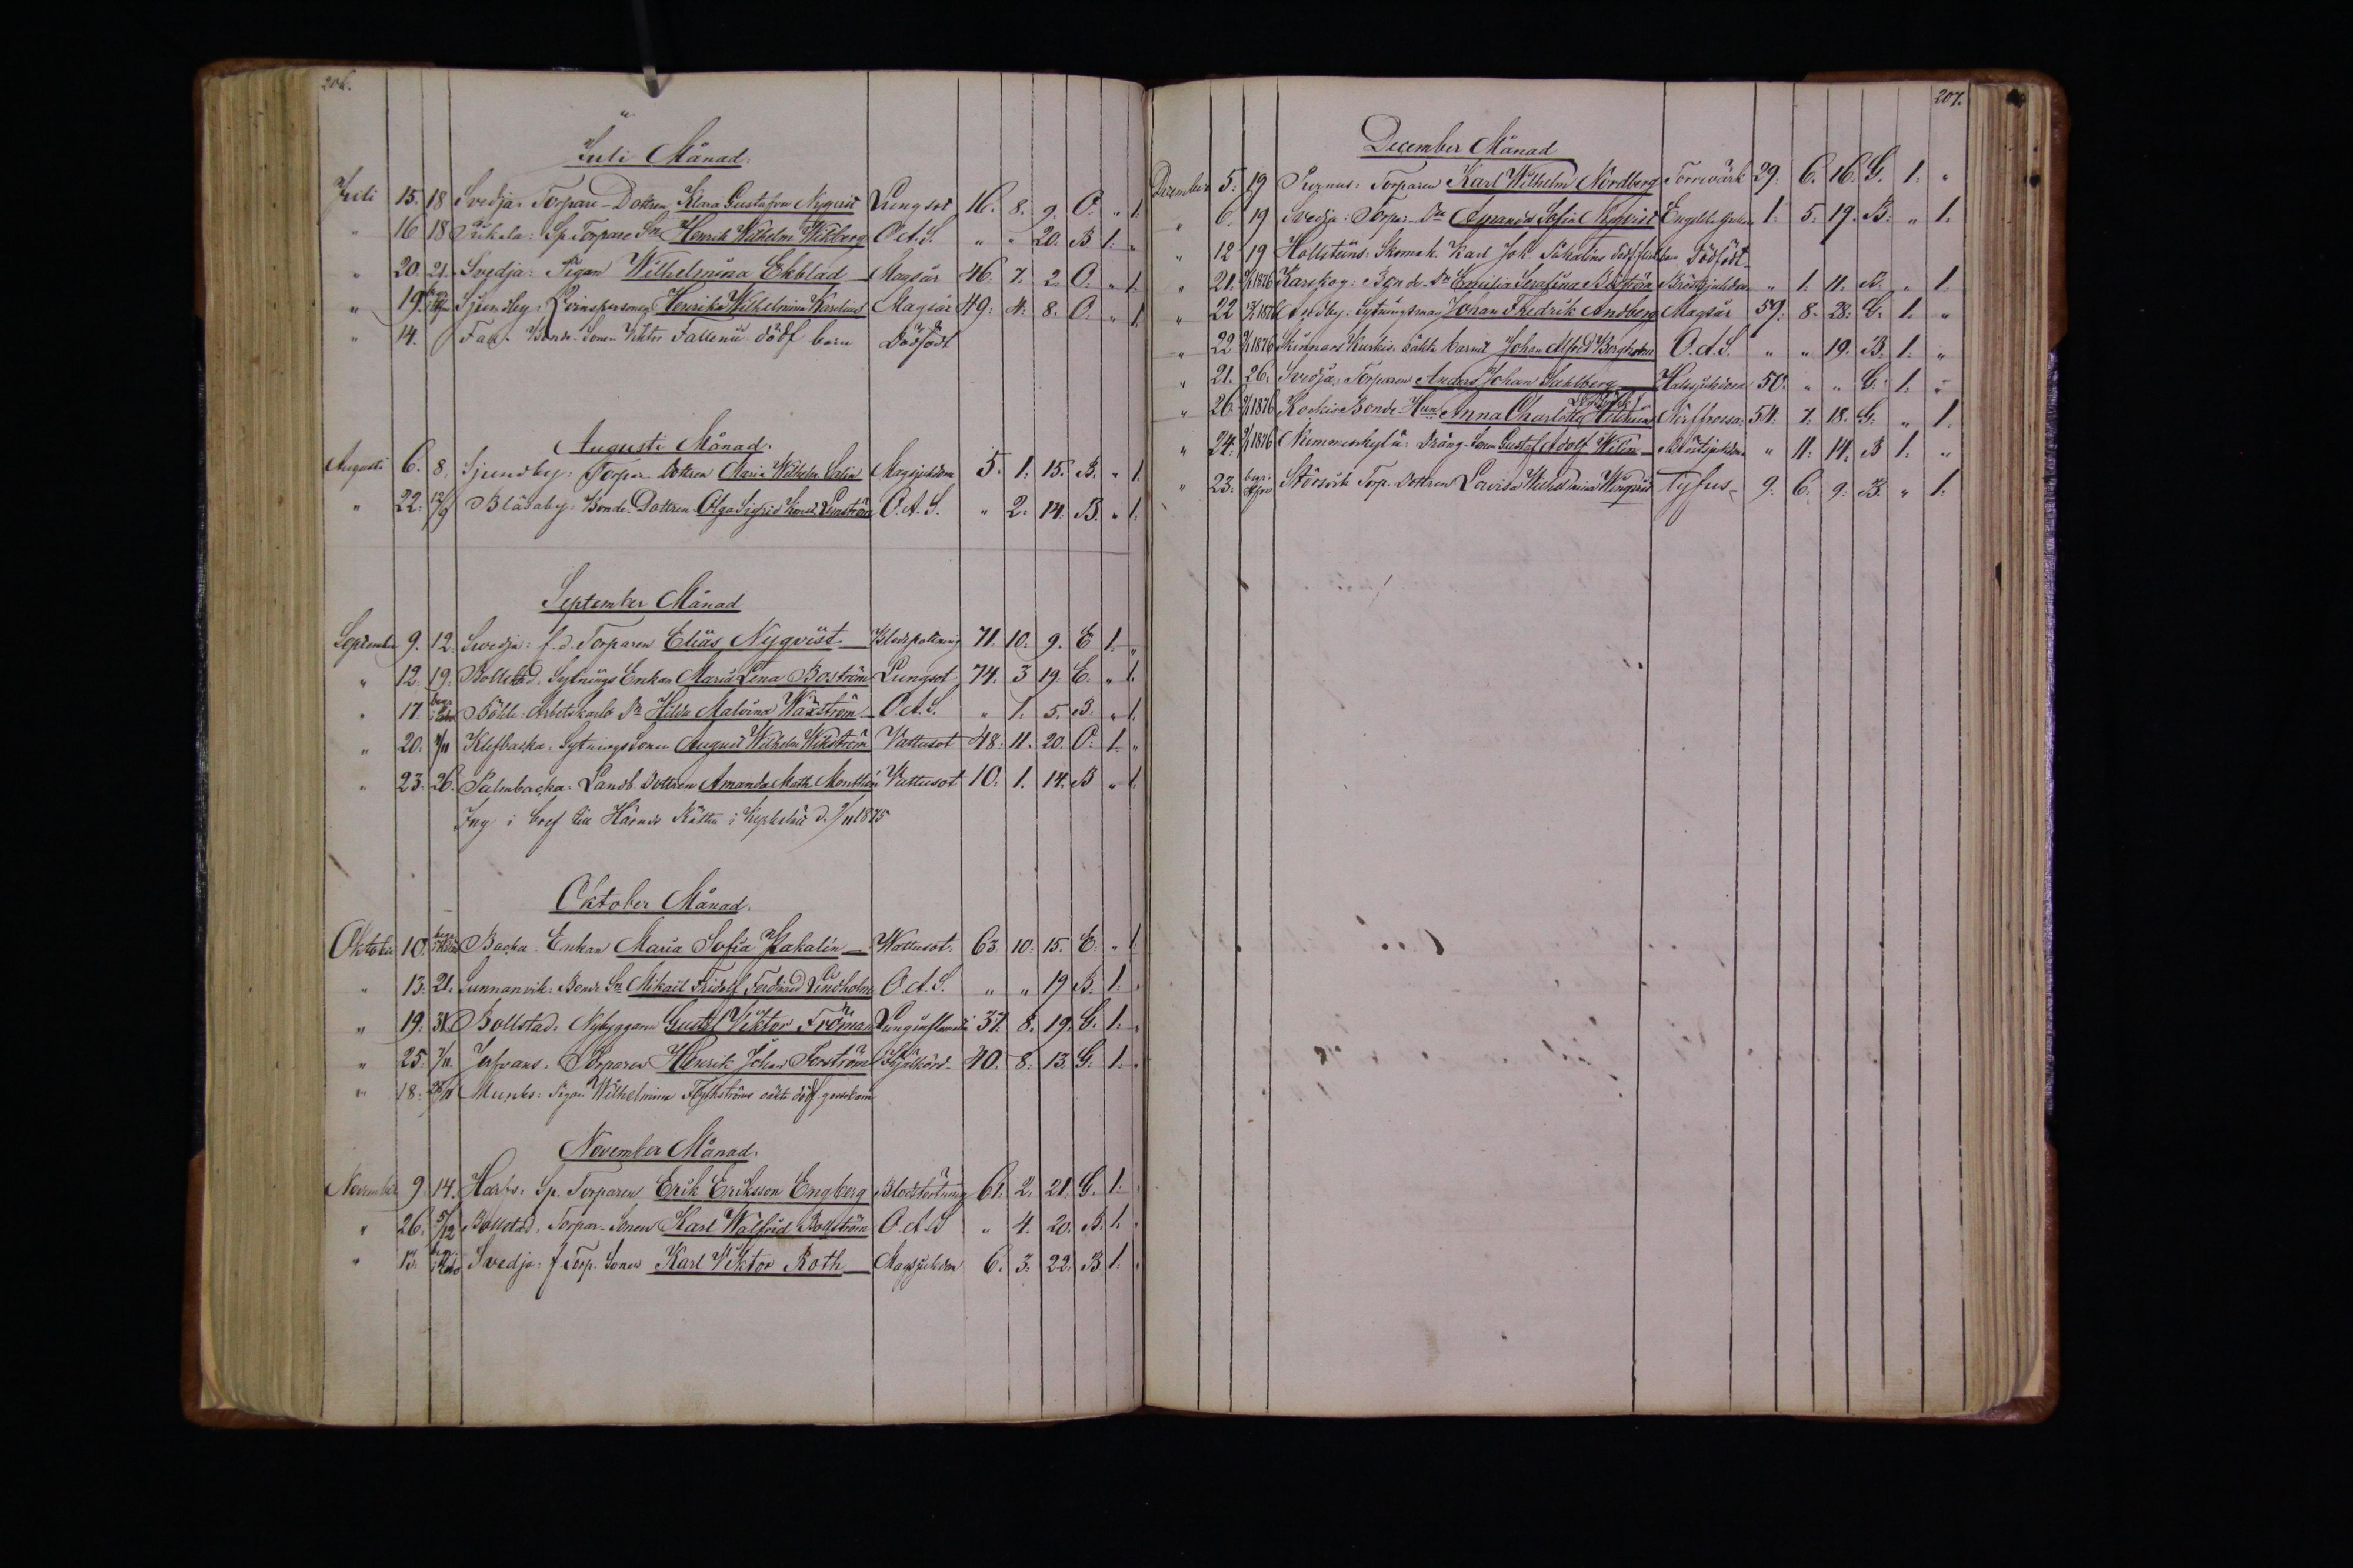 206.
Juli Månad.
Juli 15. 18 Svedja. Torpare-Dottren Klara Gustafva Nyqvist Lungsot 16. 8. 9. O. „ 1.
„ 16 18 Pikala: Sp. Torpare Sn Henrik Wilhelm Wikberg O.A.S. „ „ 20. B 1. „
„ 20. 21. Svedja: Pigan Wilhelmina Ekblad Magsår 46. 7. 2. O. „ 1.
„ 19. Sjundby: Henrika Wilhelmina Magsår 49. 4. 8. O. „ 1.
„ 14. Fall. Bonde Sonen Viktor dödf barn Dödfödt
Augusti Månad.
Augusti 6. 8. Sjundby: Torpar Dottren Maria Wilhelm. Magsjukdom 5. 1. 15. B. „ 1.
„ 22. 12/9 Blåsaby: Bonde Dottren Olga Sigrid O.A.S. „ 2. 14. B. „ 1.
September Månad
September 9. 12. Svedja: f.d. Torparen Elias Nyqvist Blodspottning 71. 10. 9. E 1. „
„ 12. 19. Bollstad. Sytnings Enkan Maria Lena Boström Lungsot 74. 3 19. E. „ 1.
„ 17. Böhle: Arbetskarls Dn Hilda Malvina Waxström O.A.S. „ 1. 5. B. „ 1.
„ 20. Klefbacka. Sytnings Sonen August Wilhelm Wikström Vattusot 48. 11. 20. O. 1. „
„ 23. 26. Palmbacka: Landb. Dottren Amanda Math. Vattusot 10. 1. 14. B „ 1.
i bref till Härads Rätten i d. 1875
Oktober Månad.
Oktober 10. Backa Enkan Maria Sofia Wattusot. 63 10. 15. E. „ 1.
„ 13. 21. Sunnanvik: Bonde Sn Mikael Fridolf Ferdinand Lindholm O.A.S. „ „ 19 B. 1.
„ 19. 31 Bollstad. Nybyggaren Gustaf Viktor Fröman Lunginflamm. 37. 8. 19. G. 1.
„ 25. Torparen Henrik Johan Forström 40. 8. 13. G. 1.
„ 18. Munks: Pigan Wilhelmina Flyktströms oäkta dödf gossebarn
November Månad.
November 9. 14. Harfs. Sp. Torparen Erik Eriksson Engberg Blodstörtning 61. 2. 21. G. 1.
„ 26. 5/12 Bollstad. Torpar-Sonen Karl Walfrid Bollström O.A.S „ 4. 20. B. 1.
„ 13. Svedja: f Torp. Sonen Karl Viktor Roth Magsjukdom 6. 3. 22. B 1.
207.
December Månad
December 5. 19 Purnus: Torparen Karl Wilhelm Nordberg Torrvärk 29. 6. 16. G. 1. „
„ 6. 19 Svedja: Torpar-Dn Amanda Sofia Nyqvist Engelska 1. 5. 19. B. „ 1.
„ 12 19 Hollsteins: Skomak. Karl Joh. dödf. flickebarn Dödfödt
„ 21. 1876 Karskog: Bonde-Dn Emilia Serafina Bröstsjukdom „ 1. 11. B. „ 1.
„ 22 1876 Andby: Sytningsman Johan Fredrik Andberg Magsår 59. 8. 28. G. 1. „
„ 22 1876 Skinnars Kurkis oäkta barnet Johan Alfred Bergholm O.A.S. „ „ 19. B. 1. „
„ 21. 26. Svedja: Torparen Anders Johan Sahlberg Halssjukdom 50. „ „ G. 1. „
„ 26. 1876 Kockis Bonde-Hun Anna Charlotta Nerffrossa 54. 7. 18. G. „ 1.
„ 24. 1876 Nummenkylä: Dräng-Sonen Gustaf Adolf Bröstsjukdom „ 11. 14. B 1. „
„ 23. Störsvik Torp. Dottren Lovisa Wilhelmina Tyfus 9. 6. 9. B. „ 1.